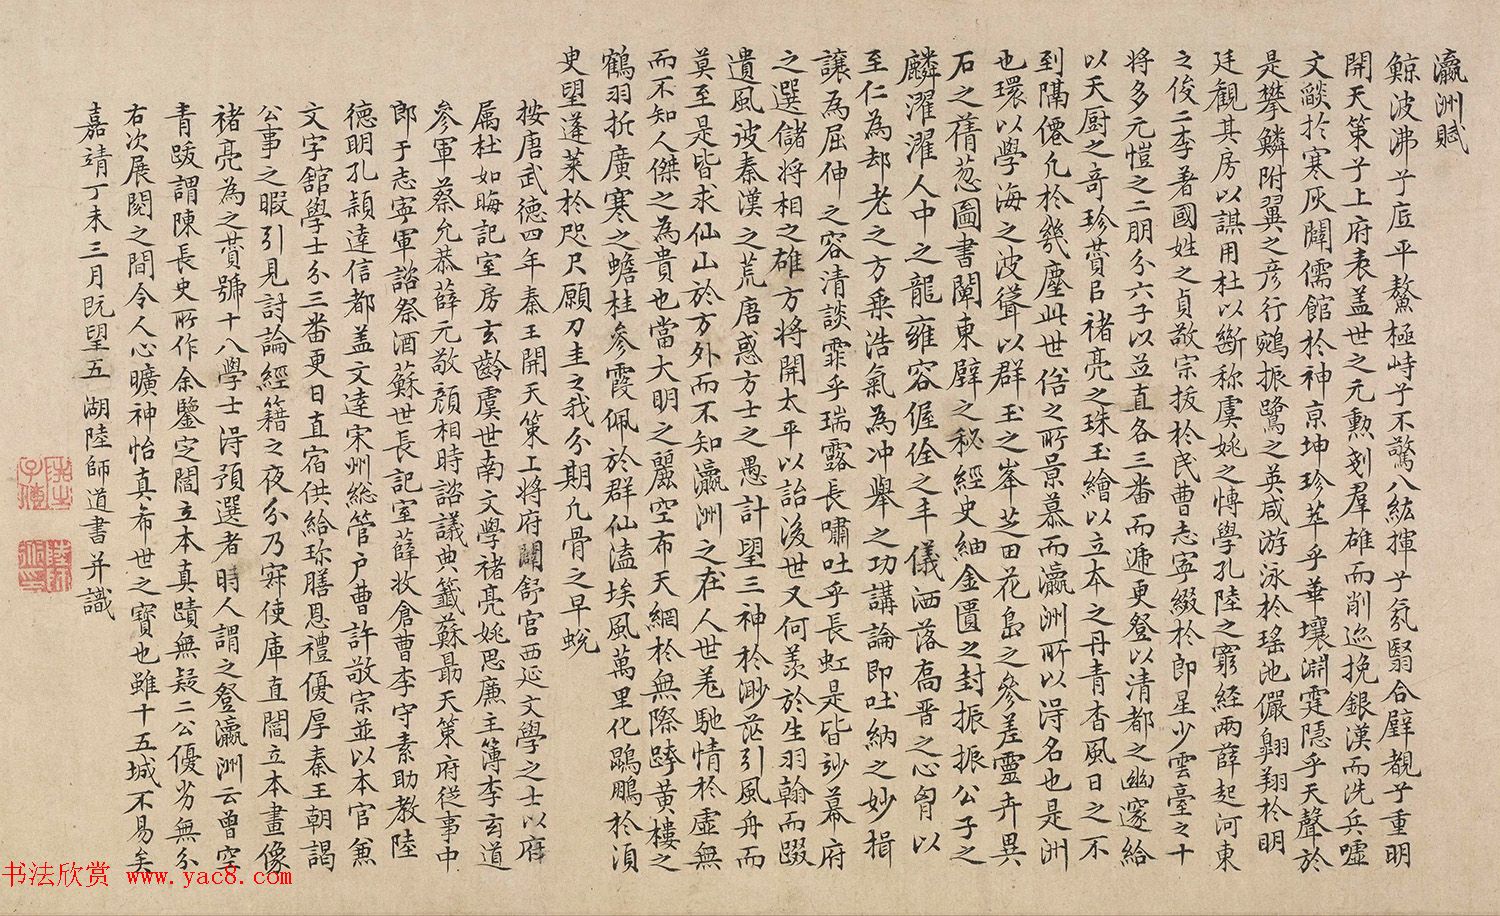 瀛洲賦
鯨波沸乎底平鰲極峙乎不驚八紘揮乎氛翳合璧覩乎重明
開天策乎上府表盖世之元勲剗羣雄而削巡挽銀漢而洗兵噓
文燄於寒灰闢儒館於神京坤珍萃乎華壤淵霆隱乎天聲於
是攀鱗附翼之彦行鵷振鷺之英咸游泳於瑤池儼翺翔於明
廷觀其房以謀用杜以斷称虞姚之博學孔陸之窮経兩薛起河東
之俊二李著國姓之貞敬宗抜於民曹志寧綴於郎星少雲臺之十
将多元愷之二朋分六子以並直各三番而遞更登以清都之幽邃給
以天厨之奇珍賛㠯褚亮之珠玉繪以立本之丹青杳風日之不
到隔僊凡於幾塵此世俗之所景慕而瀛洲所以得名也是洲
也環以學海之波聳以群玉之峯芝田花島之參差靈卉異
石之蒨葱圖書闡東壁之秘經史紬金匱之封振振公子之
麟濯濯人中之龍雍容偓佺之丰儀洒落喬晋之心胷以
至仁為却老之方乗浩氣為冲舉之功講論即吐納之妙揖
讓為屈伸之容清談霏乎瑞露長嘯吐乎長虹是皆玅幕府
之選儲将相之雄方将開太平以詒後世又何羨於生羽翰而躡
遺風彼秦漢之荒唐惑方士之愚計望三神於渺茫引風舟而
莫至是皆求仙山於方外而不知瀛洲之在人世羌馳情於虚無
而不知人傑之為貴也當大明之麗空布天網於無際跨黄樓之
鶴羽折廣寒之蟾桂參霞佩於群仙溘埃風萬里化鷗鵬於湏
叟望蓬莱於咫尺願刀圭之我分期凡骨之早蛻
按唐武徳四年秦王開天策上将府闢舒宫西延文學之士以府
属杜如晦記室房玄齡虞世南文學褚亮姚思廉主簿李玄道
參軍蔡允恭薛元敬顔相時諮議典籖蘇勗天策府従事中
郎于志寧軍諮祭酒蘇世長記室薛收倉曹李守素助教陸
徳明孔穎達信都盖文達宋州総管户曹許敬宗並以本官兼
文字舘學士分三番更日直宿供給珎膳恩禮優厚秦王朝謁
公事之暇引見討論經籍之夜分乃寐使庫直閻立本畫像
褚亮為之賛號十八學士得預選者時人謂之登瀛洲云曾空
青跋謂陳長史所作余鑒定閻立本真蹟無疑二公優劣無分
右次展閲之間令人心曠神怡真希世之寶也雖十五城不易矣
嘉靖丁未三月既望五湖陸師道書并識
书法欣赏 www.yac8.com